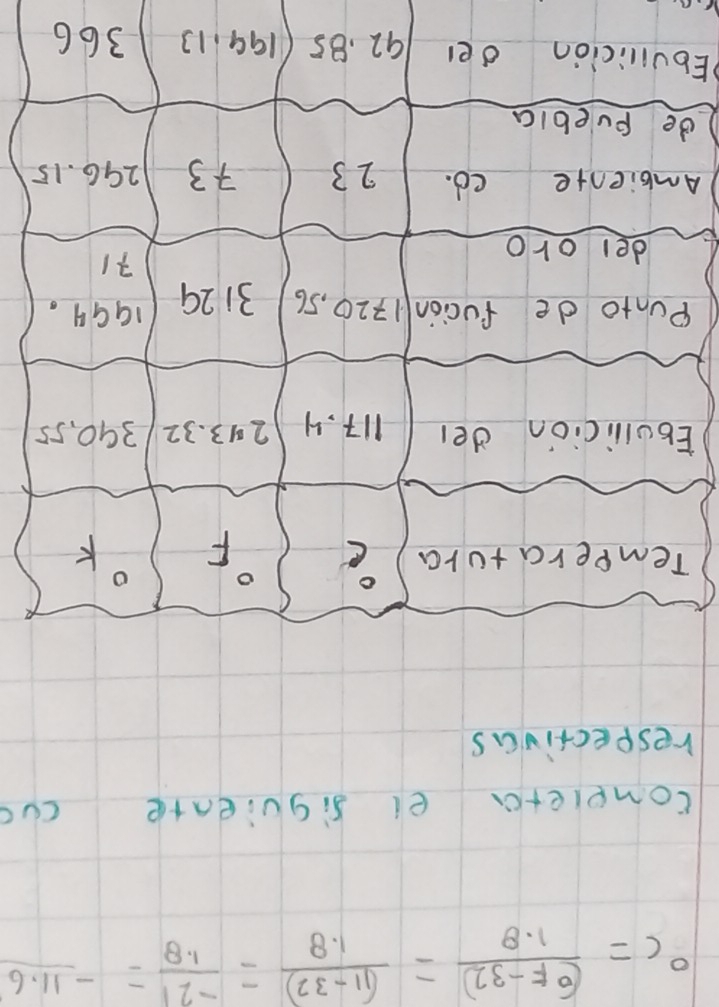 °C = (°F-32) / 1.8 = (11-32) / 1.8 = -21 / 1.8 = -11.6
completa el siguiente
respectivas
Temperatura °C °F °K
Ebullición del 117.4 243.32 390.55
Punto de fución 1720.56 3129 1994.
del oro 71
Ambiente cd. 23 73 296.15
de Puebla
Ebullición del 92.85 199.13 366